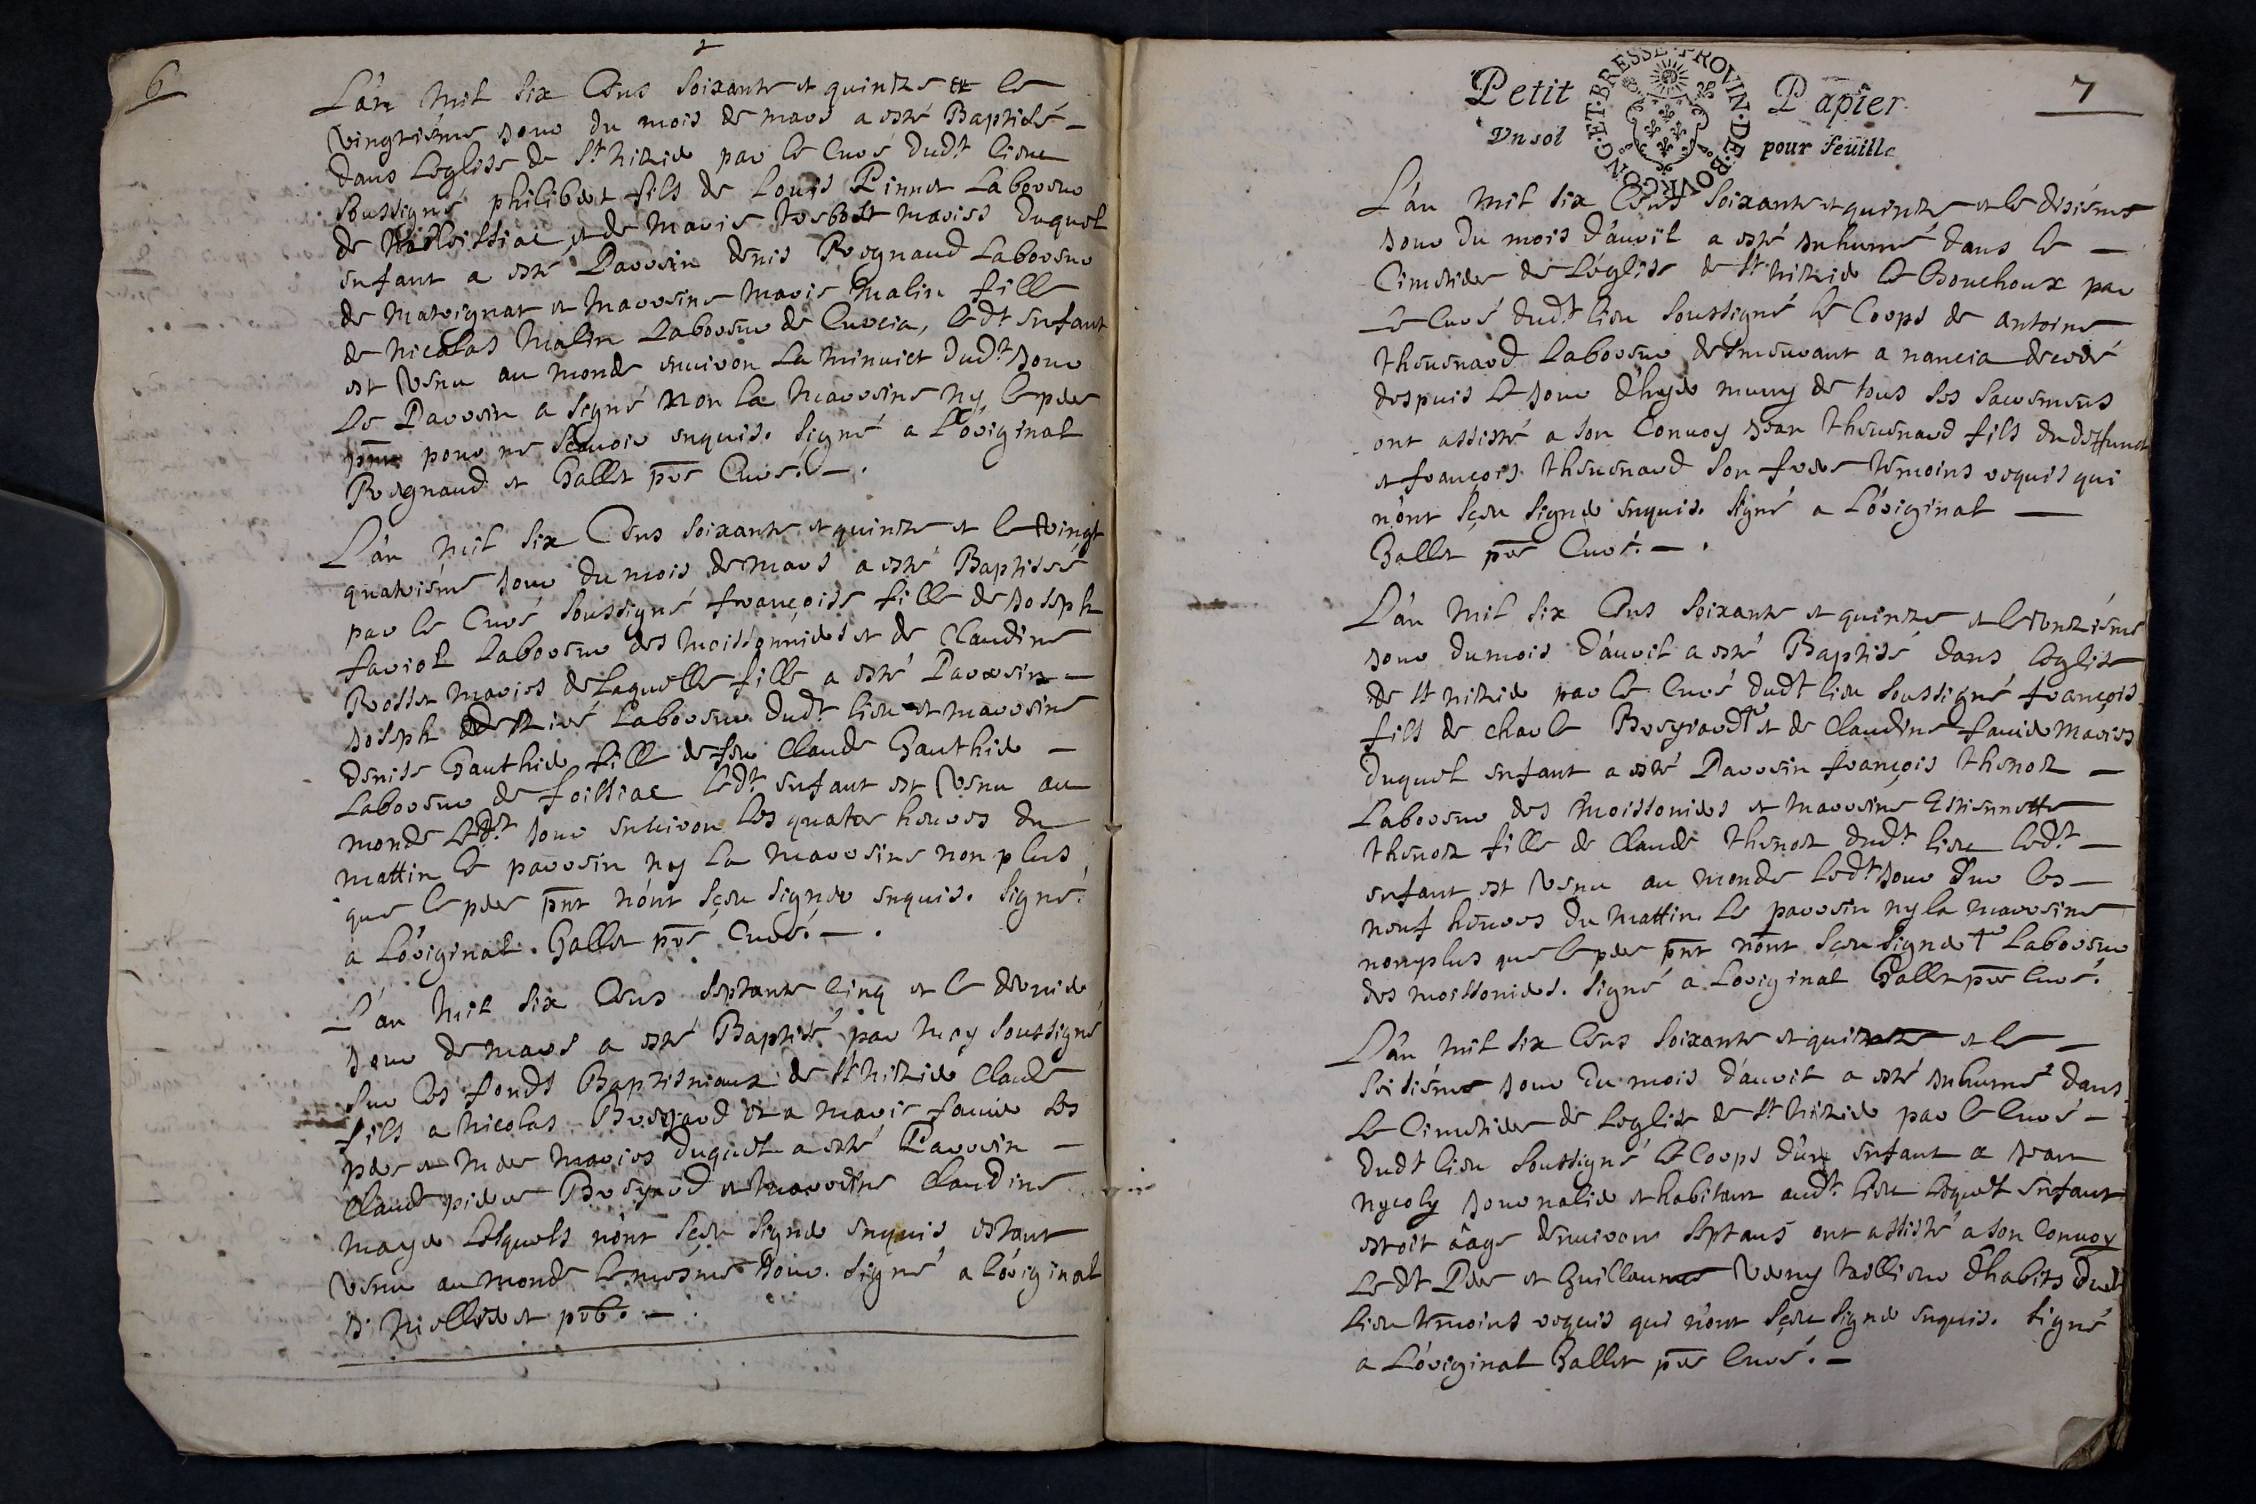 6
L'an mil six Cens soixante et quinze et le
vingtiéme jour du mois de mars a esté Baptisé
dans leglise de St nizier par le Curé dudt lieu
soussigné philibert fils de Louis Pinnet Laboureur
de et de Marie mariés duquel
enfant a esté Parrein denis Regnaud Laboureur
de Marvignat et Marreine Marie Malin fille
de Nicolas Malin Laboureur de Curcia, ledt enfant
est venu au monde environ La minuict dudt jour
Le Parrein a signé non la Marreine ny le pere
pour ne sçavoir enquis. signé a L'original
Regnaud et Gallet pre Curé.
L'an mil six Cens soixante et quinze et le vingt
quatriéme jour du mois de mars a esté Baptisée
par le Curé soussigné françoise fille de joseph
faviol Laboureur des moissonniers et de Claudine
Rosset mariés de Laquelle fille a esté Parrein
joseph Laboureur dudt lieu et marreine
denise Gauthier fille de feu Claude Gauthier
Laboureur de foissiac ledt enfant est venu au
monde ledt jour environ les quatre heures du
mattin le parrein ny la marreine non plus
que le pere pnt n'ont sçeu signer enquis. signé
a L'original. Gallet pre Curé.
L'an mil six Cens septante Cinq et le dernier
jour de mars a esté Baptisé par moy soussigné
sur les fonds Baptismaux de St nizier Claude
fils a Nicolas Breyard et a marie favier ses
pere et mere mariés duquel a esté Parrein
Claude pierre Breyard et marreine Claudine
mayer Lesquels n'ont sçeu signer enquis estant
venu au monde le mesme jour. signé a L'original
pbre
Petit Papier
Un sol pour feüille
BOVRGONG·ET·BRESSE·PROVIN·DE
7
L'an mil six Cens soixante et quinze et le diziéme
jour du mois d'avril a esté inhumé dans le
Cimetiere de L'église de St nizier le Bouchoux par
Le Curé dudt lieu soussigné le Corps de antoine
thevenard Laboureur demeurant a nancia decedé
despuis le jour d'hyer muny de tous ses sacremens
ont assisté a son Convoy jean thevenard fils du deffunct
et françois thevenard son frere témoins requis qui
n'ont sçeu signer enquis. signé a L'original
Gallet pre Curé.
L'an mil six Cens soixante et quinze et le onziéme
jour du mois d'avril a esté Baptisé dans leglise
de St nizier par le Curé dudt lieu soussigné françois
fils de charle Breyiard et de Claudine favier mariés
duquel enfant a esté Parrein françois thenoz
Laboureur des moissoniers et marreine Estiennette
thenoz fille de Claude thenoz dudt lieu ledt
enfant est venu au monde ledt jour sur les
neuf heures du mattin. Le parrein ny la marreine
nonplus que le pere pnt n'ont sçeu signer Laboureur
des moissoniers. signé a Loriginal Gallet pre Curé.
L'an mil six Cens soixante et quinze et le
seiziéme jour du mois d'avril a esté inhumé dans
Le Cimetiere de Leglise de St nizier par le Curé
dudt lieu soussigné le Corps d'un enfant a jean
nycoly journalier et habitant audt lieu Lequel enfant
estoit âage d'environ sept ans ont assisté a son Convoy
Ledt Pere et Guillaume Verny taillieur d'habits dudt
Lieu témoins requis qui n'ont sçeu signer enquis. signé
a L'original Gallet pre Curé.